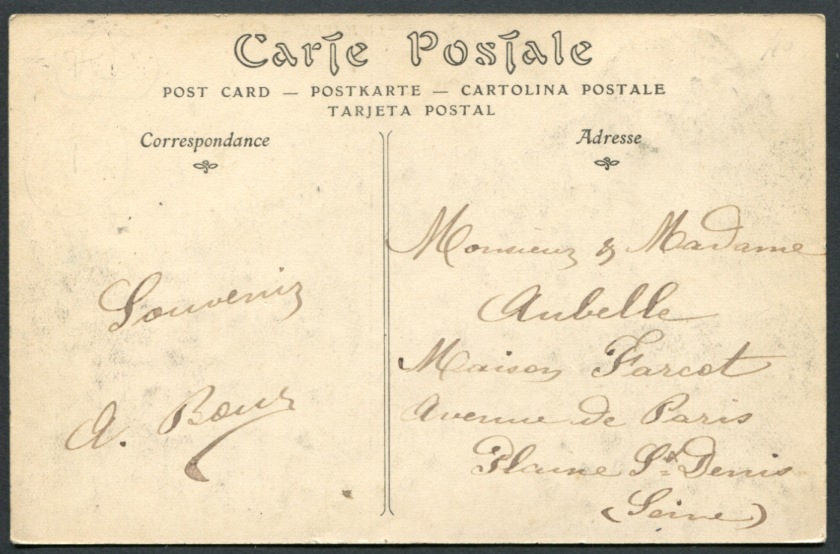 Carte Postale
POST CARD — POSTKARTE — CARTOLINA POSTALE
TARJETA POSTAL
Correspondance
Souvenir
A.
Adresse
Monsieur & Madame
Aubelle
Maison Farcot
Avenue de Paris
Plaine St Denis
(Seine)